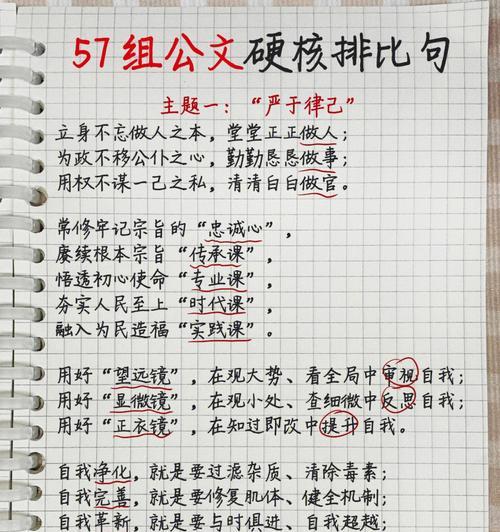 57组公文硬核排比句
主题一：“严于律己”
立身不忘做人之本，堂堂正正做人；
为政不移公仆之心，勤勤恳恳做事；
用权不谋一己之私，清清白白做官。
常修牢记宗旨的“忠诚心”，
赓续根本宗旨“传承课”，
悟透初心使命“专业课”，
夯实人民至上“时代课”，
融入为民造福“实践课”。
用好“望远镜”，在观大势、看全局中审视自我；
用好“显微镜”，在观小处、查细微中反思自我；
用好“正衣镜”，在知过即改中提升自我。
自我净化，就是要过滤杂质、清除毒素；
自我完善，就是要修复肌体、健全机制；
自我革新，就是要与时俱进、自我超越